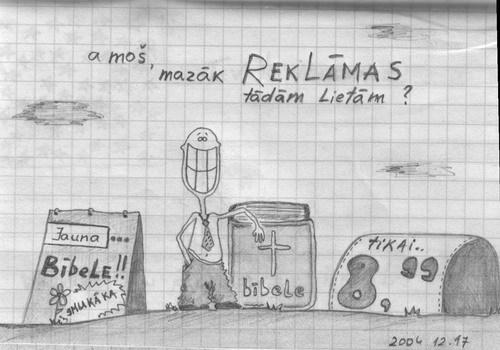 a moš,
mazāk REKLĀMAS
tādām Lietām ?
Jauna ...
Bībele!!
SMUKĀKA
bībele
tikai..
8.99
2004 12.17